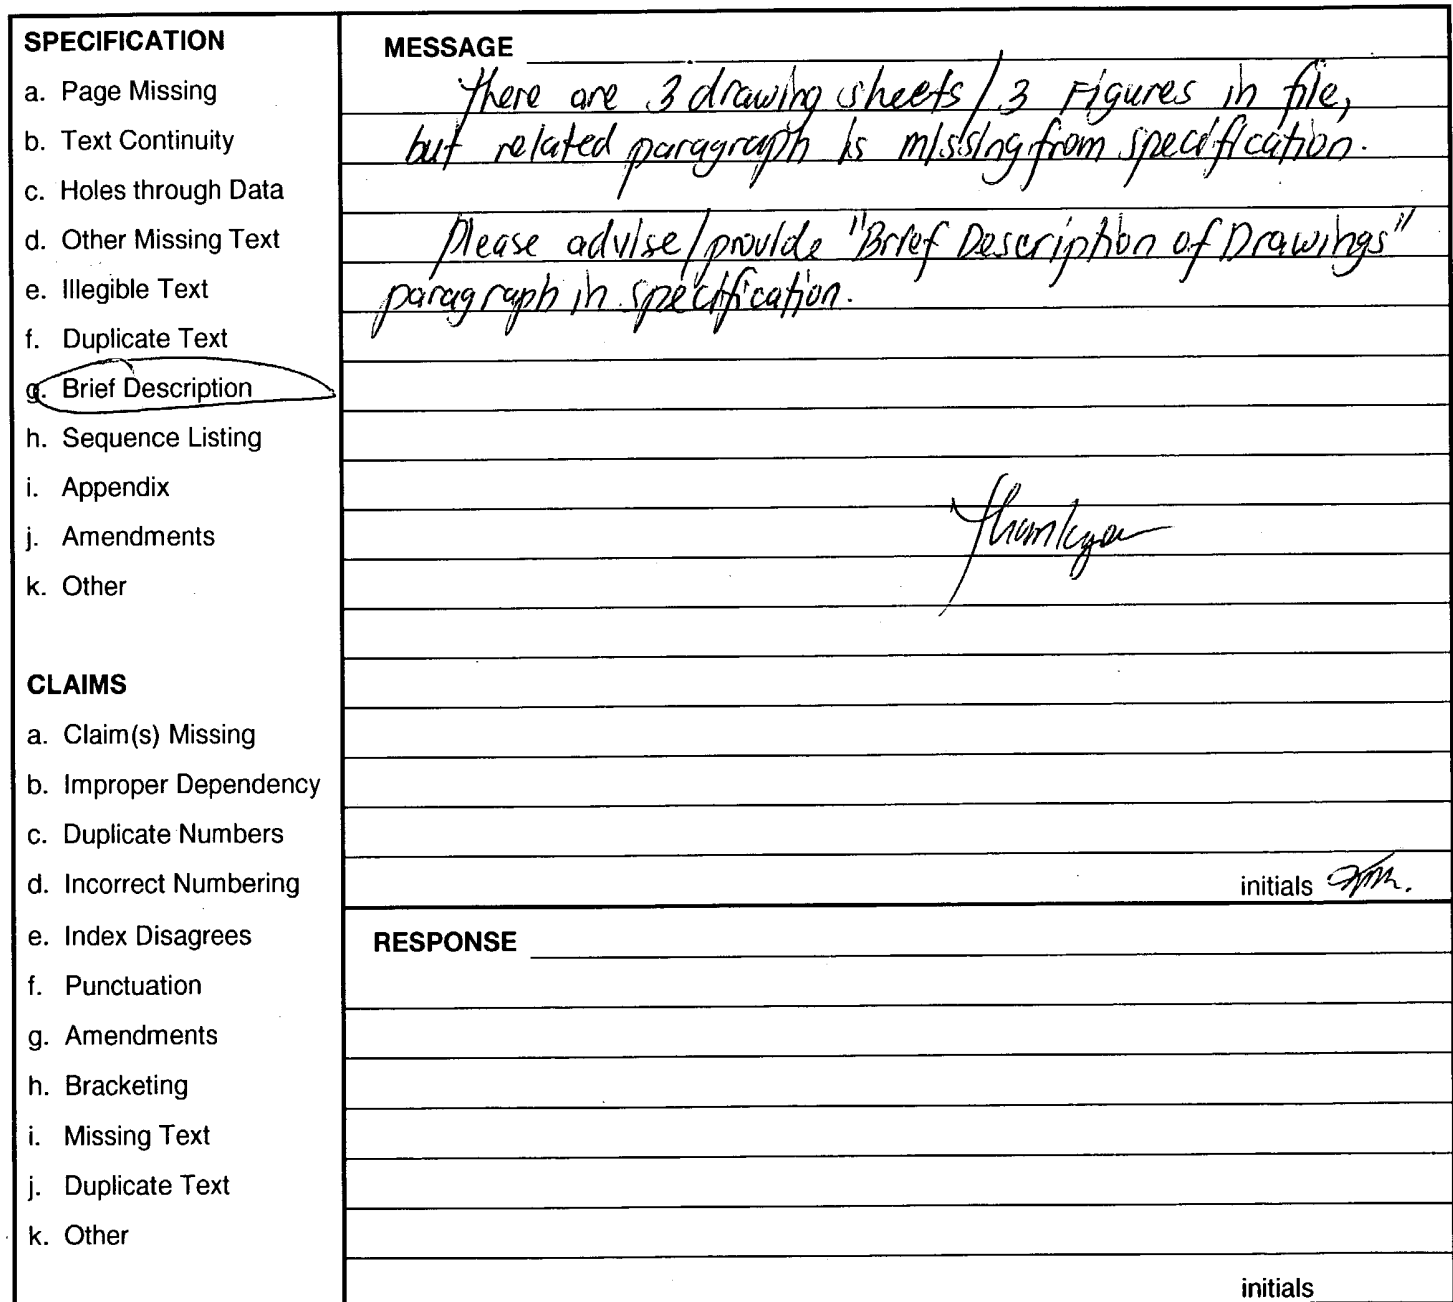 SPECIFICATION
a. Page Missing
b. Text Continuity
c. Holes through Data
d. Other Missing Text
e. Illegible Text
f. Duplicate Text
g. Brief Description
h. Sequence Listing
i. Appendix
j. Amendments
k. Other
CLAIMS
a. Claim(s) Missing
b. Improper Dependency
c. Duplicate Numbers
d. Incorrect Numbering
e. Index Disagrees
f. Punctuation
g. Amendments
h. Bracketing
i. Missing Text
j. Duplicate Text
k. Other
MESSAGE
There are 3 drawing sheets / 3 Figures in file,
but related paragraph is missing from specification.
Please advise/provide "Brief Description of Drawings"
paragraph in specification.
Thank you
initials
RESPONSE
initials